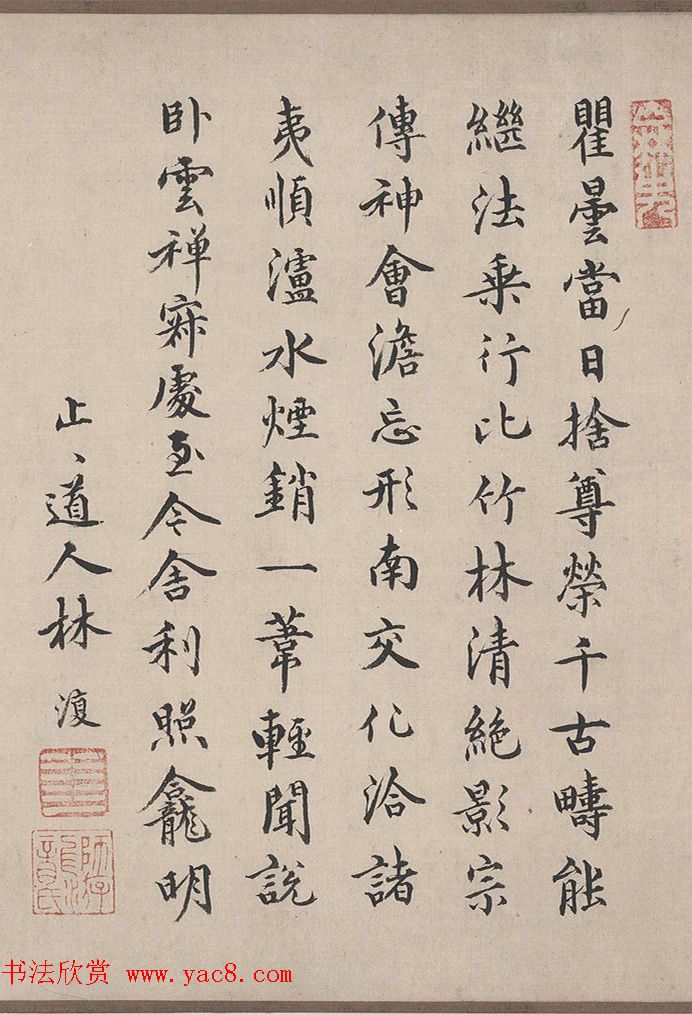 瞿曇當日捨尊榮千古疇能
繼法乗行比竹林清絶影宗
傳神會澹忘形南交化洽諸
夷順瀘水煙銷一葦輕聞說
卧雲禅寂處至今舎利照龕明
止、道人林復
书法欣赏 www.yac8.com